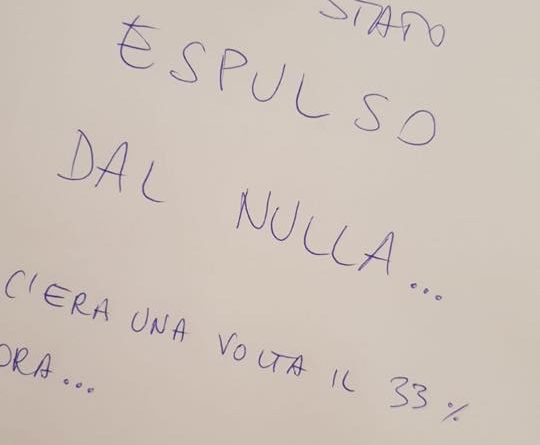 STATO
ESPULSO
DAL NULLA...
C'ERA UNA VOLTA IL 33%
ORA...